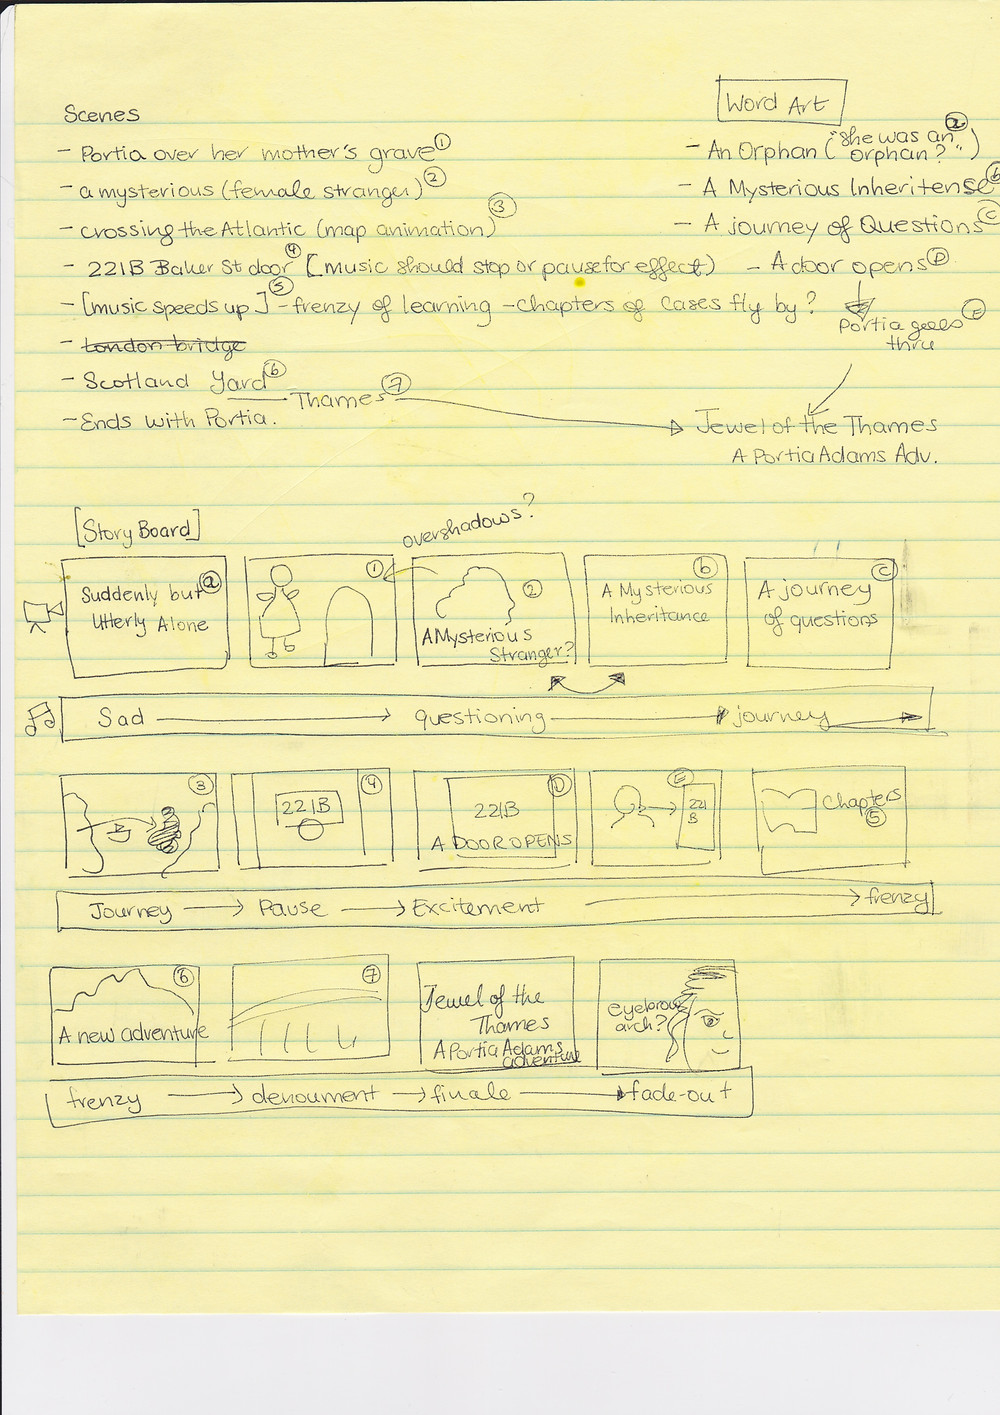 Scenes
Word Art
- Portia over her mother's grave 1
- An Orphan ("she was an orphan?") a
- a mysterious (female stranger) 2
- A Mysterious Inheritense b
- crossing the Atlantic (map animation) 3
- A journey of Questions c
- 221B Baker St door 4 [music should stop or pause for effect)
- A door opens D
- [music speeds up] 5 - frenzy of learning - Chapters of Cases fly by?
Portia goes thru E
- London bridge
- Scotland Yard 6
Thames 7
- Ends with Portia.
Jewel of the Thames
A Portia Adams Adv.
[Story Board]
overshadows?
Suddenly but a
Utterly Alone
1
2
A Mysterious
Stranger?
b
A Mysterious
Inheritance
c
A journey
of questions
Sad questioning journey
3
4
221B
D
221B
A DOOR OPENS
E
221
B
Chapters
5
Journey Pause Excitement frenzy
6
A new adventure
7
Jewel of the
Thames
A Portia Adams
adventure
eyebrow
arch?
frenzy denoument finale fade-out